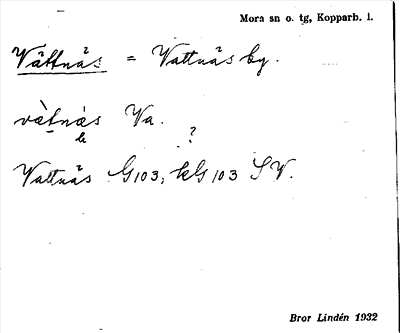 Mora sn o. tg, Kopparb. l.
Våttnäs = Vattnäs by.
vàtnäs Va.
?
Vattnäs G103, kG103 SV.
Bror Lindén 1932